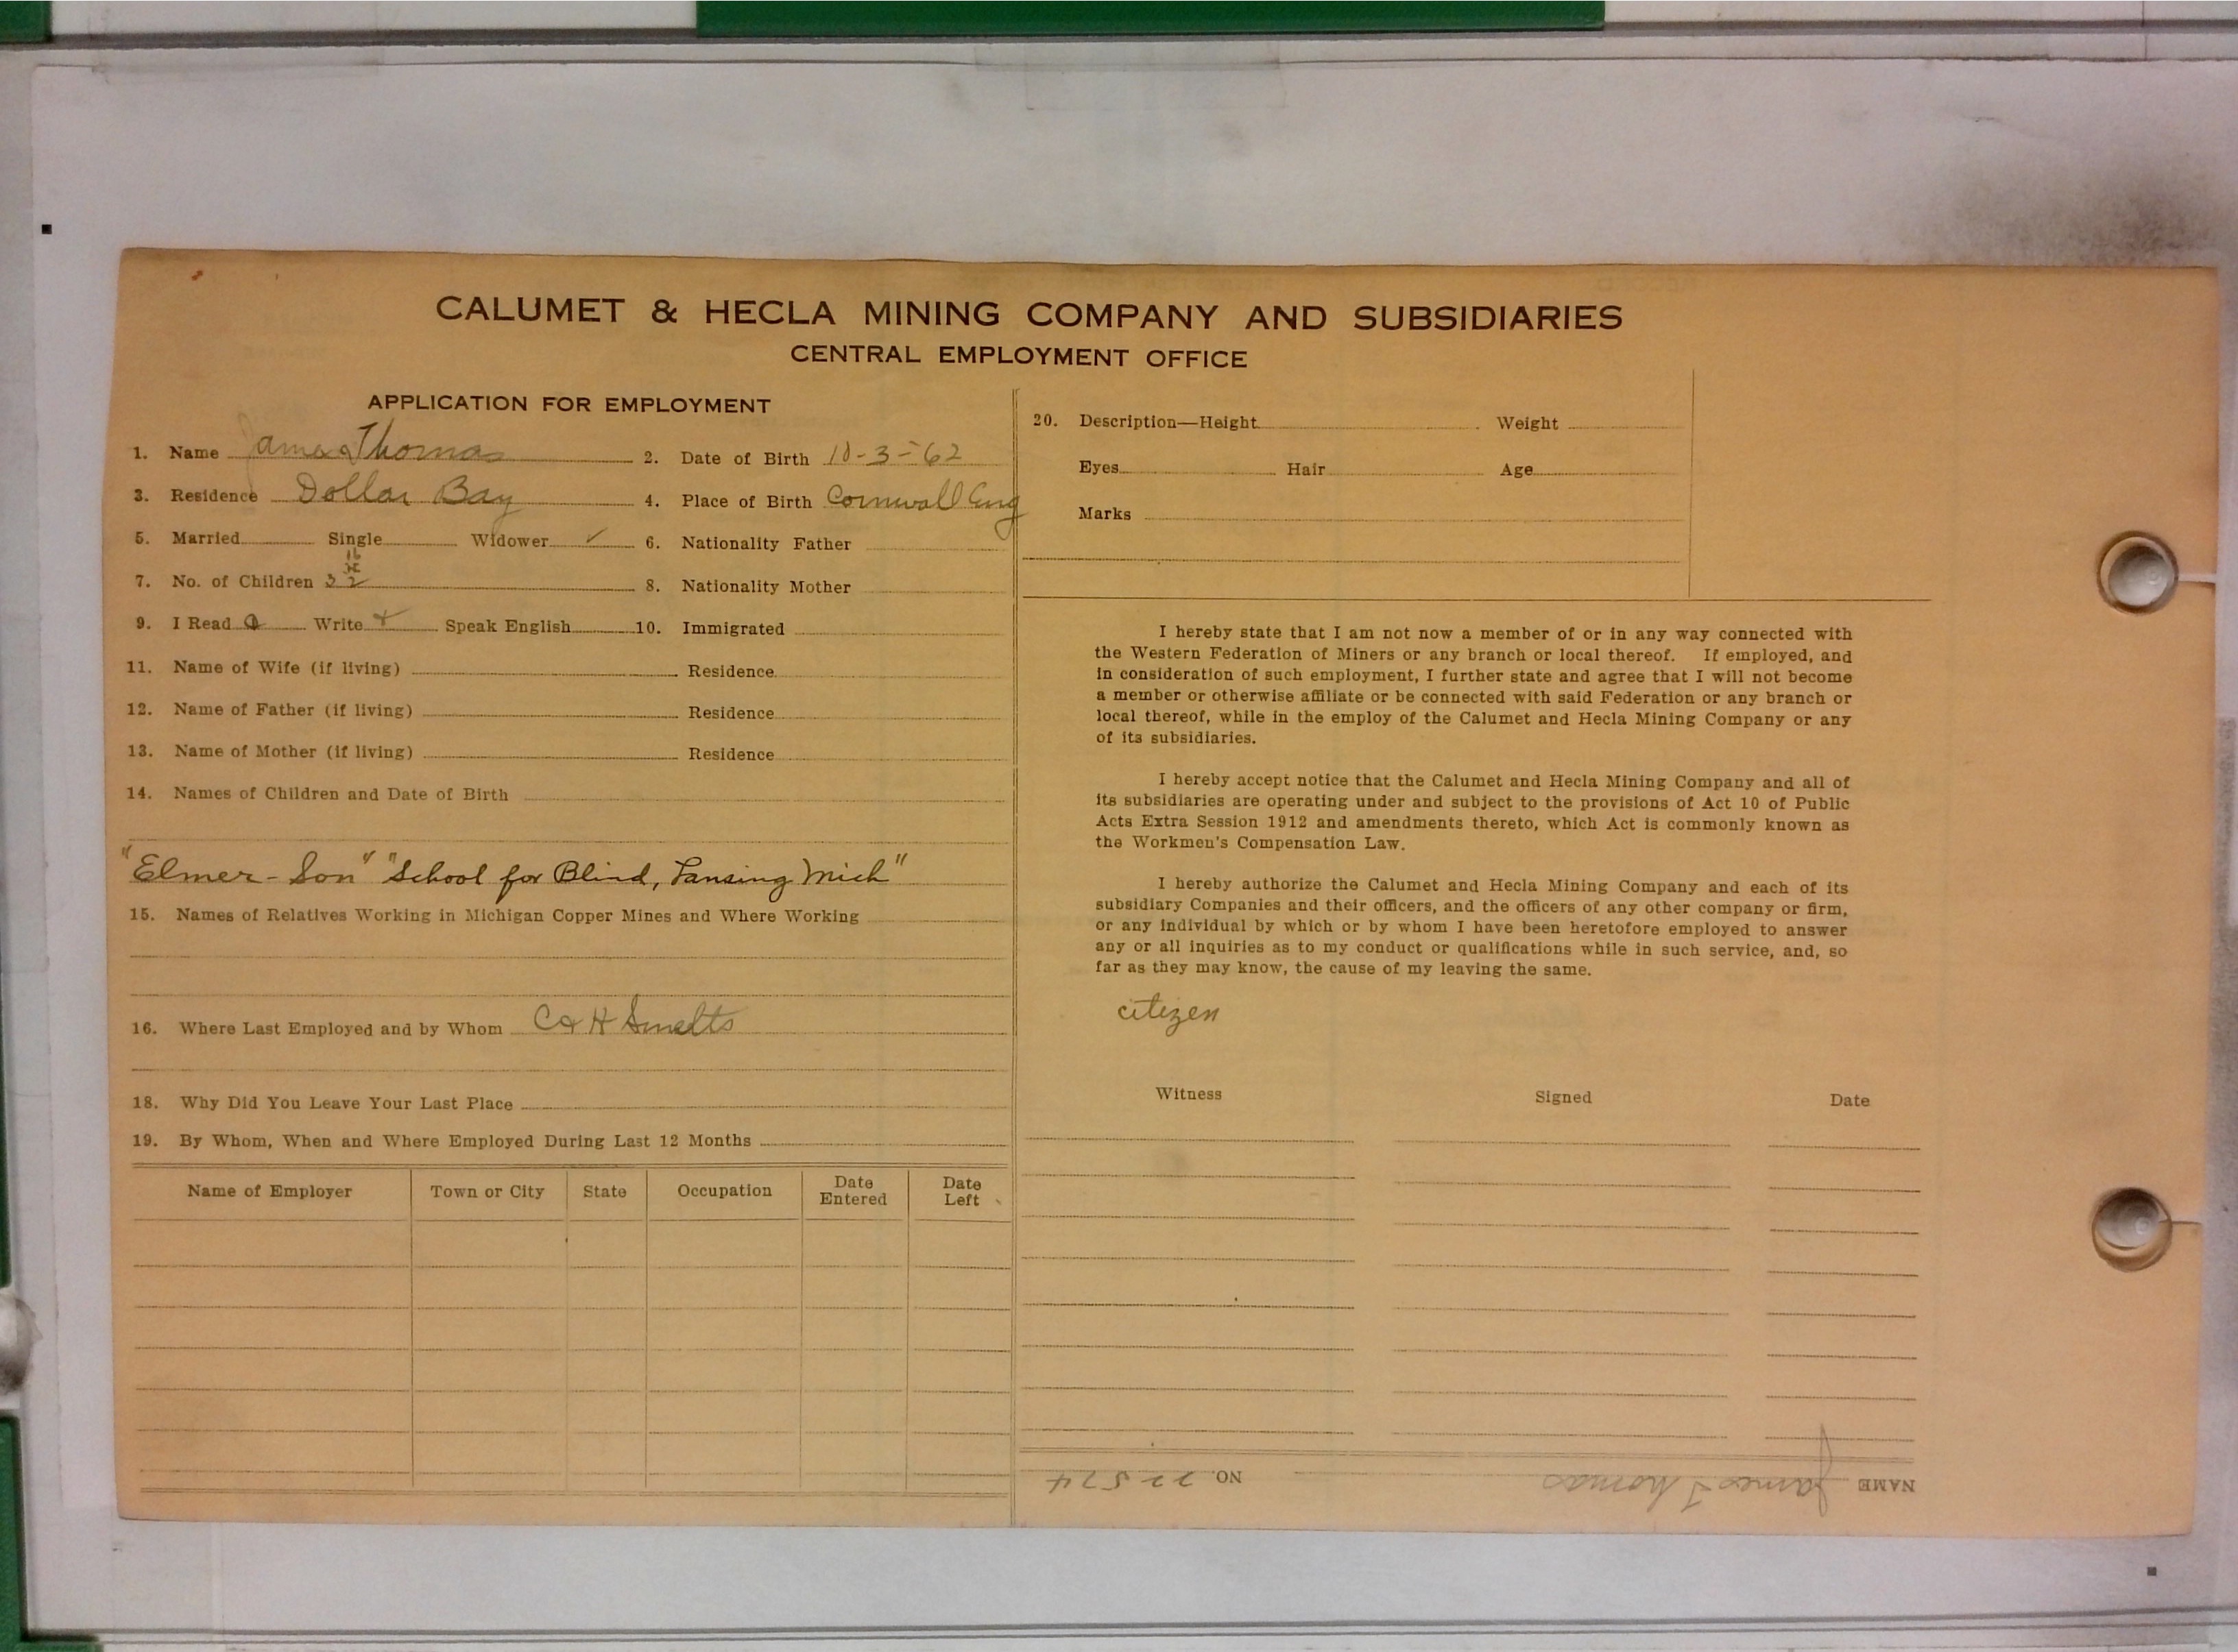 CALUMET & HECLA MINING COMPANY AND SUBSIDIARIES
CENTRAL EMPLOYMENT OFFICE
APPLICATION FOR EMPLOYMENT
1. Name James Thomas 2. Date of Birth 10-3-'62
3. Residence Dollar Bay 4. Place of Birth Cornwall Eng
5. Married Single Widower ✓ 6. Nationality Father
16
7. No. of Children 3 2 8. Nationality Mother
9. I Read Write Speak English 10. Immigrated
11. Name of Wife (if living) Residence
12. Name of Father (if living) Residence
13. Name of Mother (if living) Residence
14. Names of Children and Date of Birth
"Elmer - Son" "School for Blind, Lansing Mich"
15. Names of Relatives Working in Michigan Copper Mines and Where Working
16. Where Last Employed and by Whom C & H Smelts
18. Why Did You Leave Your Last Place
19. By Whom, When and Where Employed During Last 12 Months
Name of Employer Town or City State Occupation Date Entered Date Left
20. Description—Height Weight
Eyes Hair Age
Marks
I hereby state that I am not now a member of or in any way connected with
the Western Federation of Miners or any branch or local thereof. If employed, and
in consideration of such employment, I further state and agree that I will not become
a member or otherwise affiliate or be connected with said Federation or any branch or
local thereof, while in the employ of the Calumet and Hecla Mining Company or any
of its subsidiaries.
I hereby accept notice that the Calumet and Hecla Mining Company and all of
its subsidiaries are operating under and subject to the provisions of Act 10 of Public
Acts Extra Session 1912 and amendments thereto, which Act is commonly known as
the Workmen's Compensation Law.
I hereby authorize the Calumet and Hecla Mining Company and each of its
subsidiary Companies and their officers, and the officers of any other company or firm,
or any individual by which or by whom I have been heretofore employed to answer
any or all inquiries as to my conduct or qualifications while in such service, and, so
far as they may know, the cause of my leaving the same.
citizen
Witness Signed Date
NAME James Thomas NO. 22574